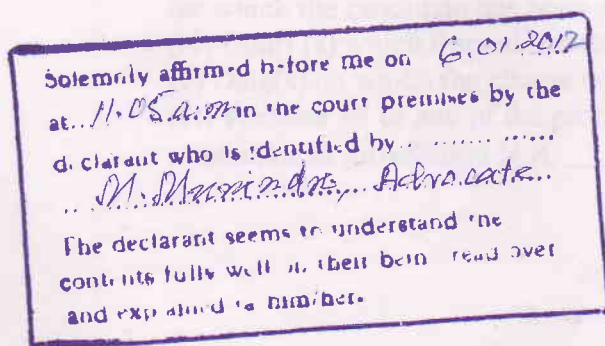 Solemnly affirmed before me on 6.01.2012
at.. 11.05 a.m in the court premises by the
declarant who is identified by .......... ......
.. M. Munindra, Advocate..
The declarant seems to understand the
contents fully well on their being read over
and explained to him/her.